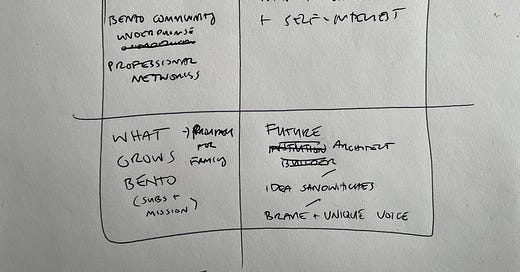 BENTO COMMUNITY
PROFESSIONAL
NETWORKS
+ SELF-INTEREST
WHAT → PROVIDER
GROWS FOR
BENTO FAMILY
(SUBS +
MISSION)
FUTURE
ARCHITECT
BUILDER
IDEA SANDWICHES
BRAVE + UNIQUE VOICE